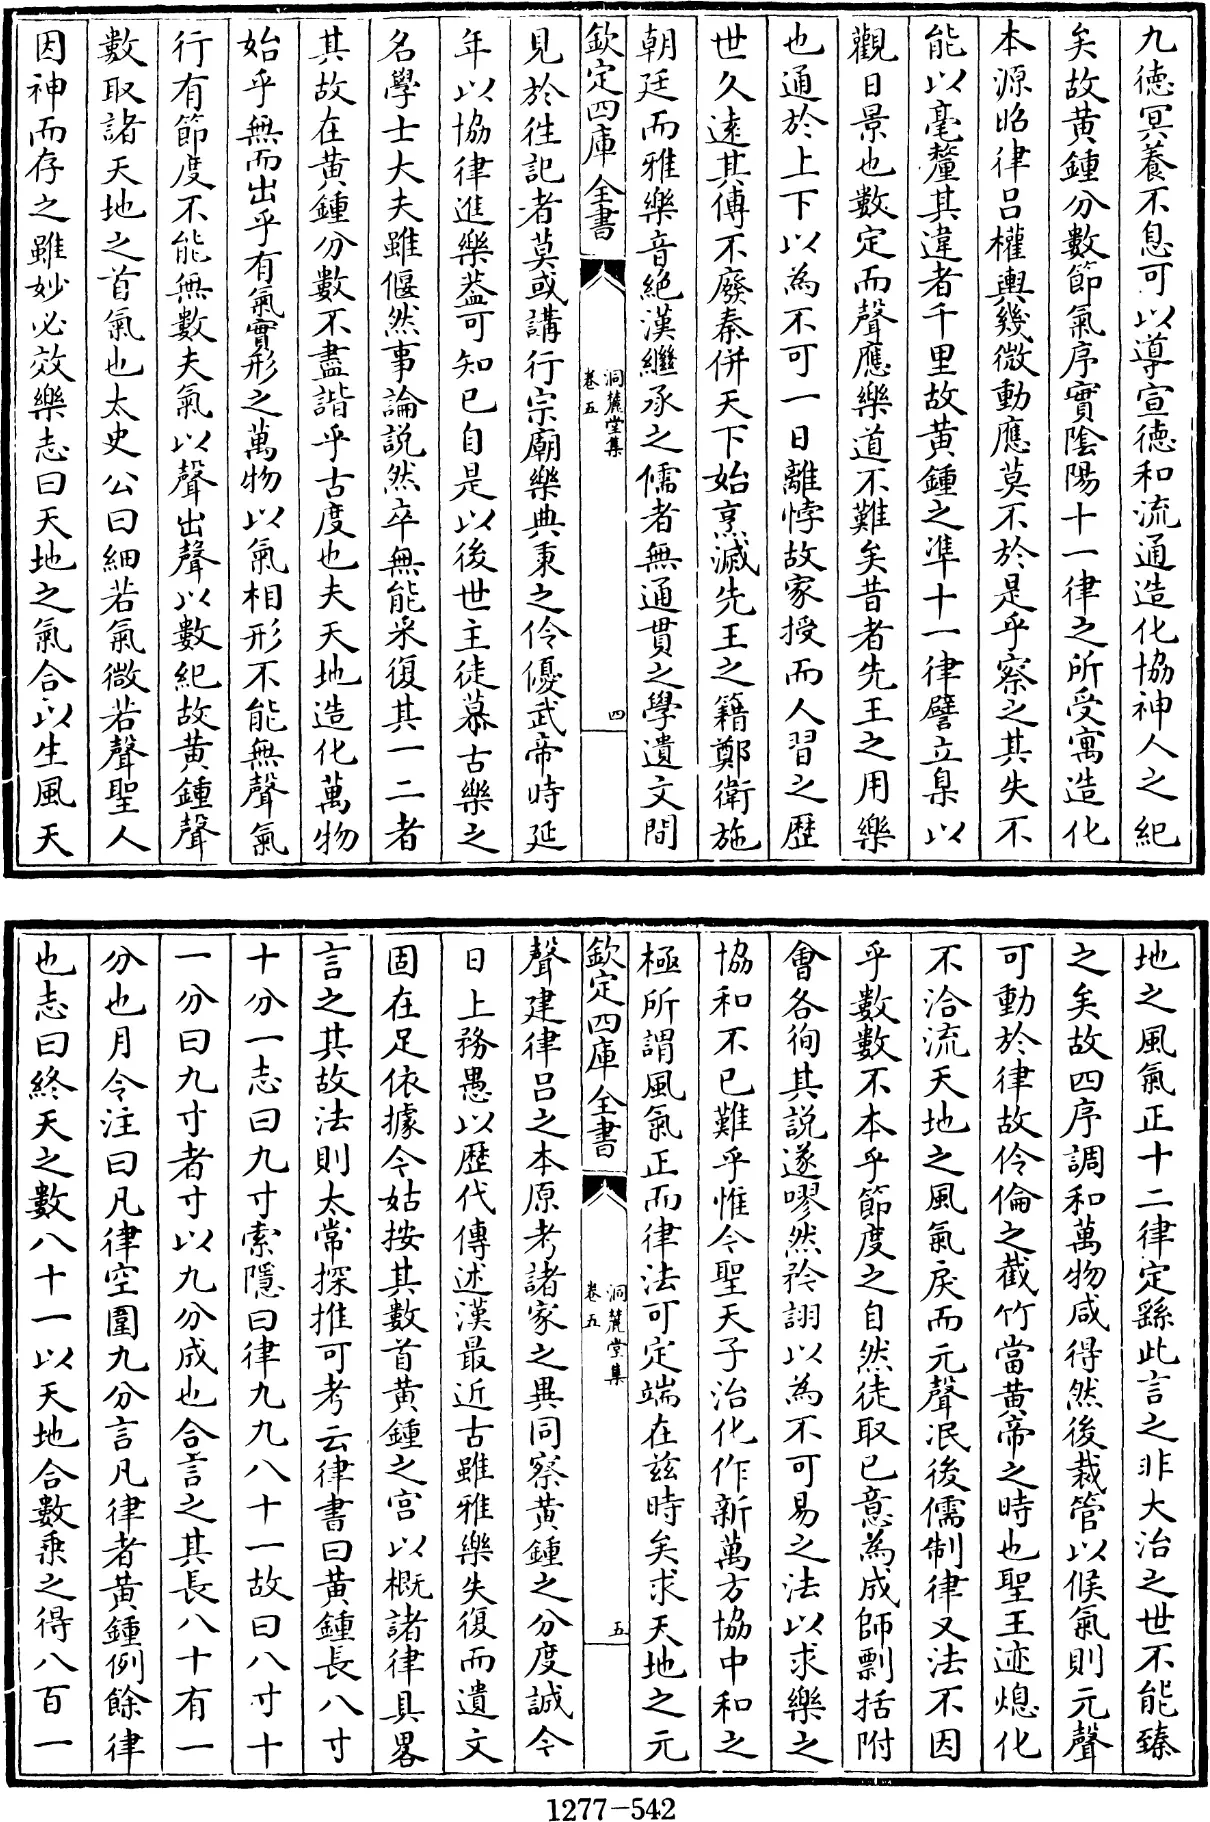 九德冥養不息可以導宣德和流通造化協神人之紀
矣故黄鍾分數節氣序實陰陽十一律之所受寓造化
本源昭律呂權輿幾微動應莫不於是乎察之其失不
能以毫釐其違者千里故黄鍾之凖十一律譬立臬以
觀日景也數定而聲應樂道不難矣昔者先王之用樂
也通於上下以為不可一日離悖故家授而人習之歴
世久遠其傳不廢秦併天下始烹滅先王之籍鄭衛施
朝廷而雅樂音絶漢繼承之儒者無通貫之學遺文間
欽定四庫全書
洞麓堂集
卷五
四
見於往記者莫或講行宗廟樂典秉之伶優武帝時延
年以協律進樂葢可知已自是以後世主徒慕古樂之
名學士大夫雖偃然事論説然卒無能采復其一二者
其故在黄鍾分數不盡諧乎古度也夫天地造化萬物
始乎無而出乎有氣實形之萬物以氣相形不能無聲氣
行有節度不能無數夫氣以聲出聲以數紀故黄鍾聲
數取諸天地之首氣也太史公曰細若氣微若聲聖人
因神而存之雖妙必效樂志曰天地之氣合以生風天
地之風氣正十二律定繇此言之非大治之世不能臻
之矣故四序調和萬物咸得然後裁管以候氣則元聲
可動於律故伶倫之截竹當黄帝之時也聖王迹熄化
不洽流天地之風氣戾而元聲泯後儒制律又法不因
乎數數不本乎節度之自然徒取已意為成師剽括附
會各徇其説遂嘐然矜詡以為不可易之法以求樂之
協和不已難乎惟今聖天子治化作新萬方協中和之
極所謂風氣正而律法可定端在兹時矣求天地之元
欽定四庫全書
洞麓堂集
卷五
五
聲建律呂之本原考諸家之異同察黄鍾之分度誠今
日上務愚以歴代傳述漢最近古雖雅樂失復而遺文
固在足依據今姑按其數首黄鍾之宫以概諸律具畧
言之其故法則太常探推可考云律書曰黄鍾長八寸
十分一志曰九寸索隱曰律九九八十一故曰八寸十
一分曰九寸者寸以九分成也合言之其長八十有一
分也月令注曰凡律空圍九分言凡律者黄鍾例餘律
也志曰終天之數八十一以天地合數乗之得八百一
1277-542